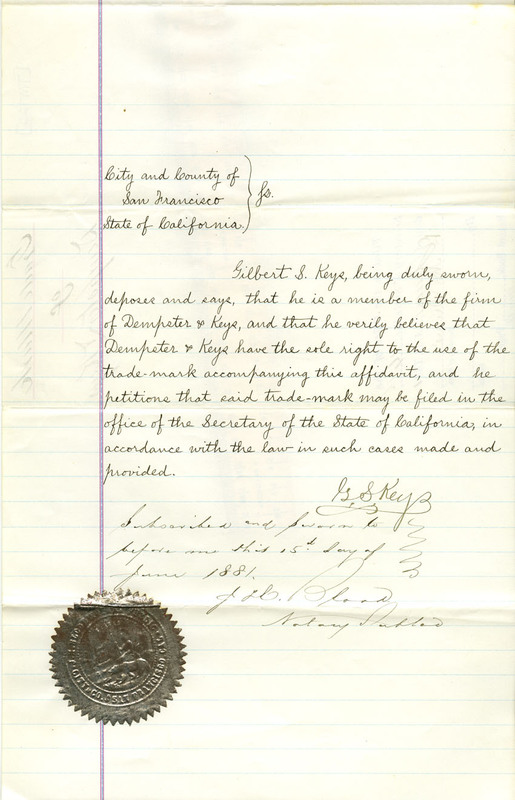 City and County of
San Francisco
State of California. } ss.
Gilbert S. Keys, being duly sworn,
deposes and says, that he is a member of the firm
of Dempster & Keys, and that he verily believes that
Dempster & Keys have the sole right to the use of the
trade-mark accompanying this affidavit, and he
petitions that said trade-mark may be filed in the
office of the Secretary of the State of California, in
accordance with the law in such cases made and
provided.
G. S. Keys
Subscribed and Sworn to
before me this 15th day of
June 1881.
J. H. Blood
Notary Public